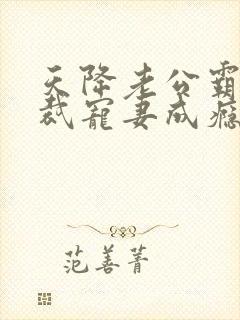 天降老公霸
裁宠妻成瘾
范善菁